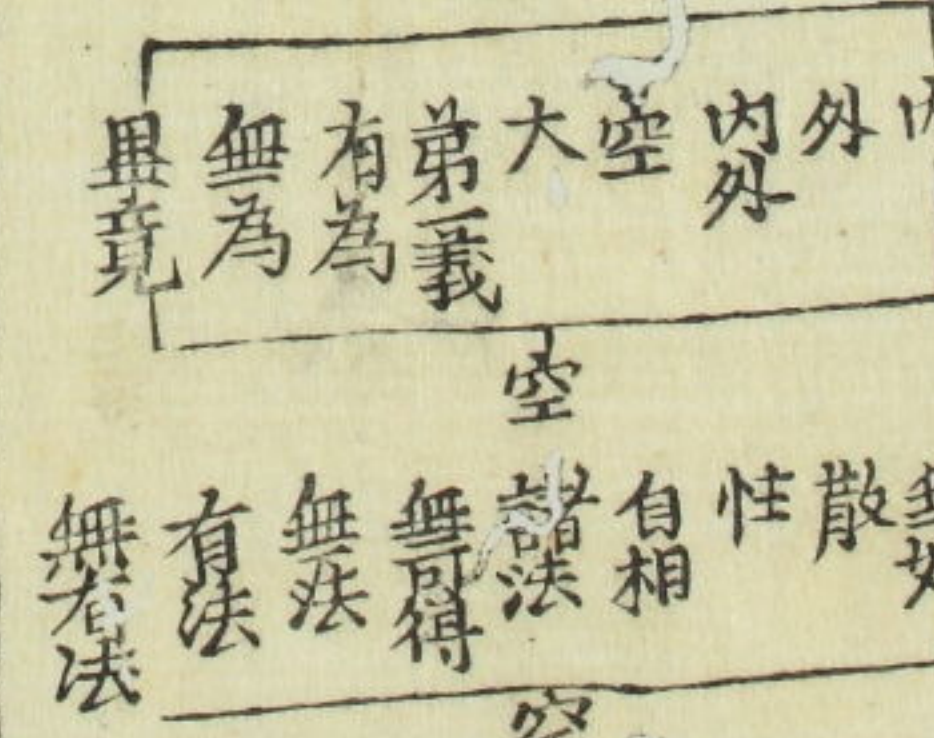 内
外
内外
空
大
苐一義
有為
無為
畢竟
空
散
性
自相
諸法
無可得
無法
有法
無有法
空